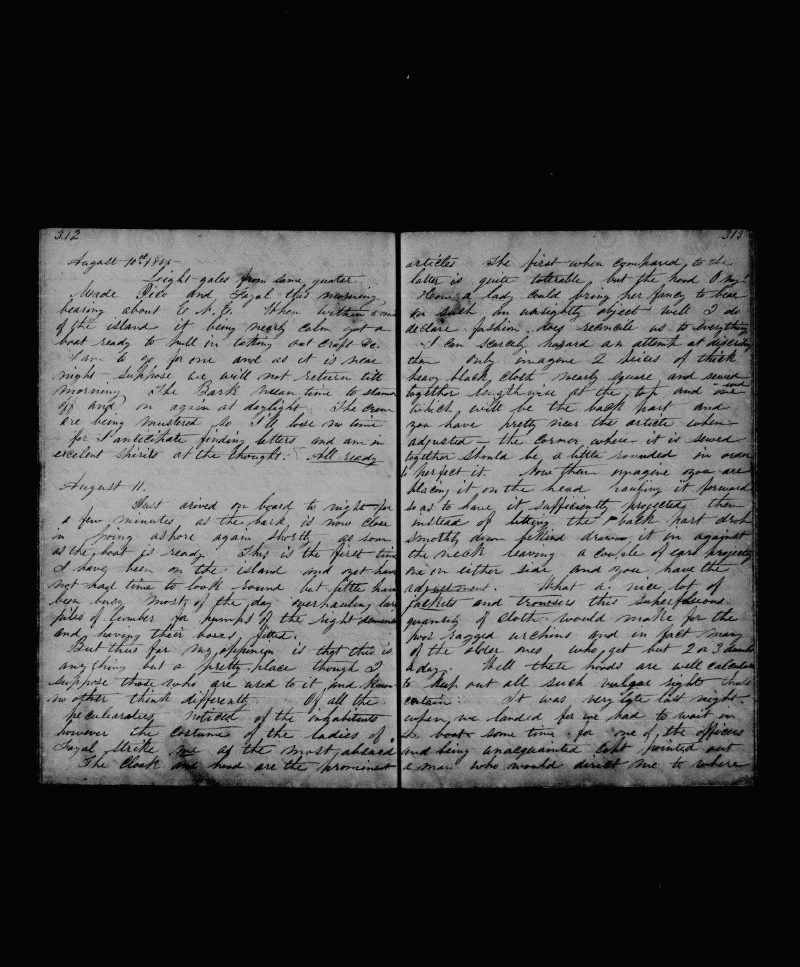 312
August 10th 1855
Leight gales from same quater.
Made Pico and Fayal this morning
bearing about E. N. E. When within
of the island it being nearly calm got a
boat ready to pull in
I am to go for one and as it is near
night suppose we will not return till
morning, The Bark mean time to stand
off and on again at daylight. The crew
are being mustered so I'll lose no time
for it anticipate finding letters and am in
excelent spirits at the thought. All ready
August 11.
Just arived on board to night for
a few minutes, as the bark is now close
in going ashore again shortly as soon
as the boat is ready. This is the first time
I have been on the island and yet have
not had time to look round but little have
been busy most of the day overhauling large
piles of lumber for pumps of the right
and having their bores fitted.
But thus far my oppinion is that this is
any thing but a pretty place though I
suppose those who are used to it and know
no other think differently. Of all the
peculiarities noticed of the inhabitants
however the costume of the ladies of
Fayal strike me as the most
The Cloak and hood are the prominent
313
articles The first when compared, to the
latter is quite tolerable, but the hood O my!
How a lady could bring her fancy to bear
on such an unsightly object well I do
declare fashion does reconcile us to everything
I can scarcely hazard an attempt at
then Only imagine 2 pieces of thick
heavy black cloth nearly square and sewed
together lengthwise at the top and one end
which, will be the back part and
you have pretty near the article when
adjusted — the corner where it is sewed
together should be a little rounded in order
to perfect it. Now then imagine you are
placing it on the head it forward
so as to have it sufficiently projected, then
instead of letting the back part drop
smothly down behind draw it in against
the neck leaving a couple of ears projecting
one on either side and you have the
adjustment. What a nice lot of
jackets and trousers this superfluous
quantity of cloth would make for the
poor ragged urchins and in fact many
of the older ones who get but 2 or 3
a day. Well these hoods are well calculated
to keep out all such vulgar sights thats
certain. It was very late last night
when we landed for we had to wait in
the boat some time for one of the officers
and being unacquainted Capt pointed out
a man who would direct me to where